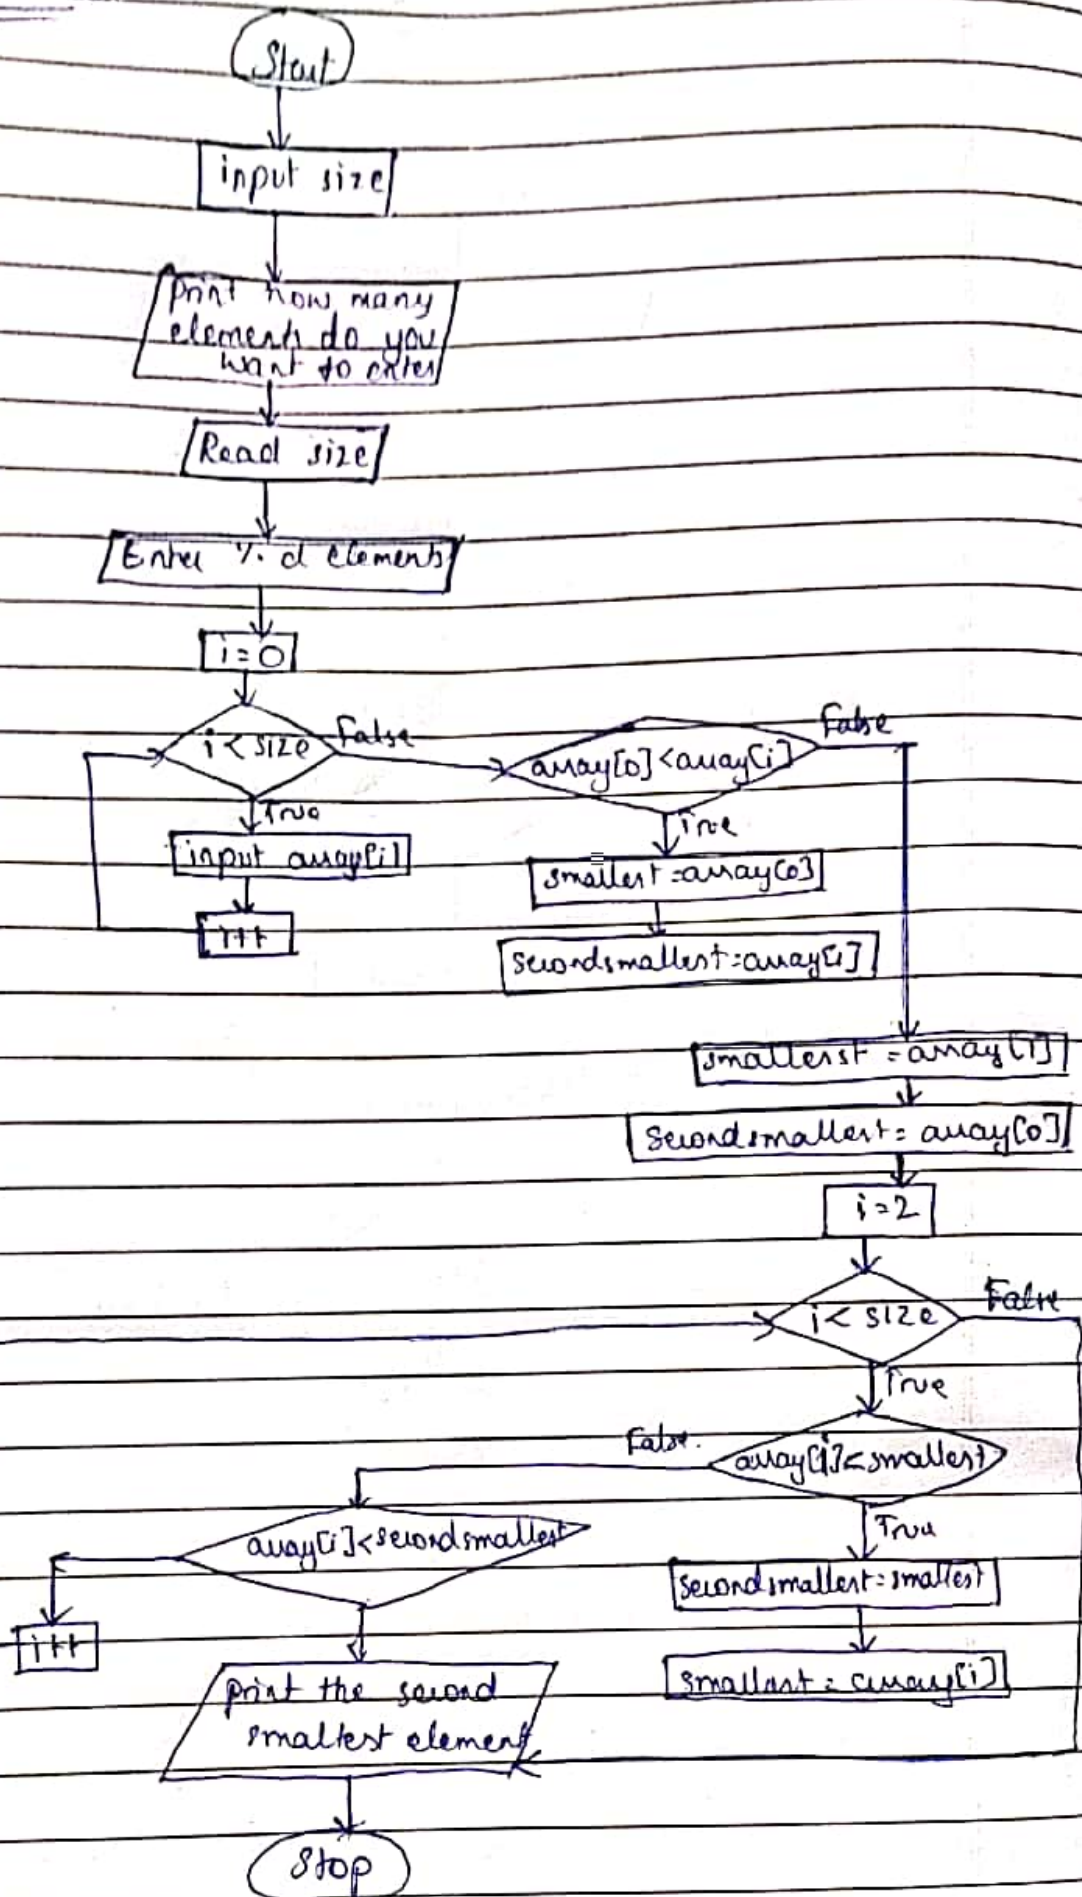 Start
input size
Print how many
elements do you
want to enter
Read size
Enter %d elements
i=0
i < size
False
True
input array[i]
i++
array[0]<array[i]
False
True
smallest =array[0]
secondsmallest=array[i]
smallerst = array[1]
Secondsmallest= array[0]
i=2
i< size
False
True
array[i]<smallest
False.
True
secondsmallest=smallest
smallest = array[i]
array[i]<secondsmallest
i++
print the second
smallest element
Stop